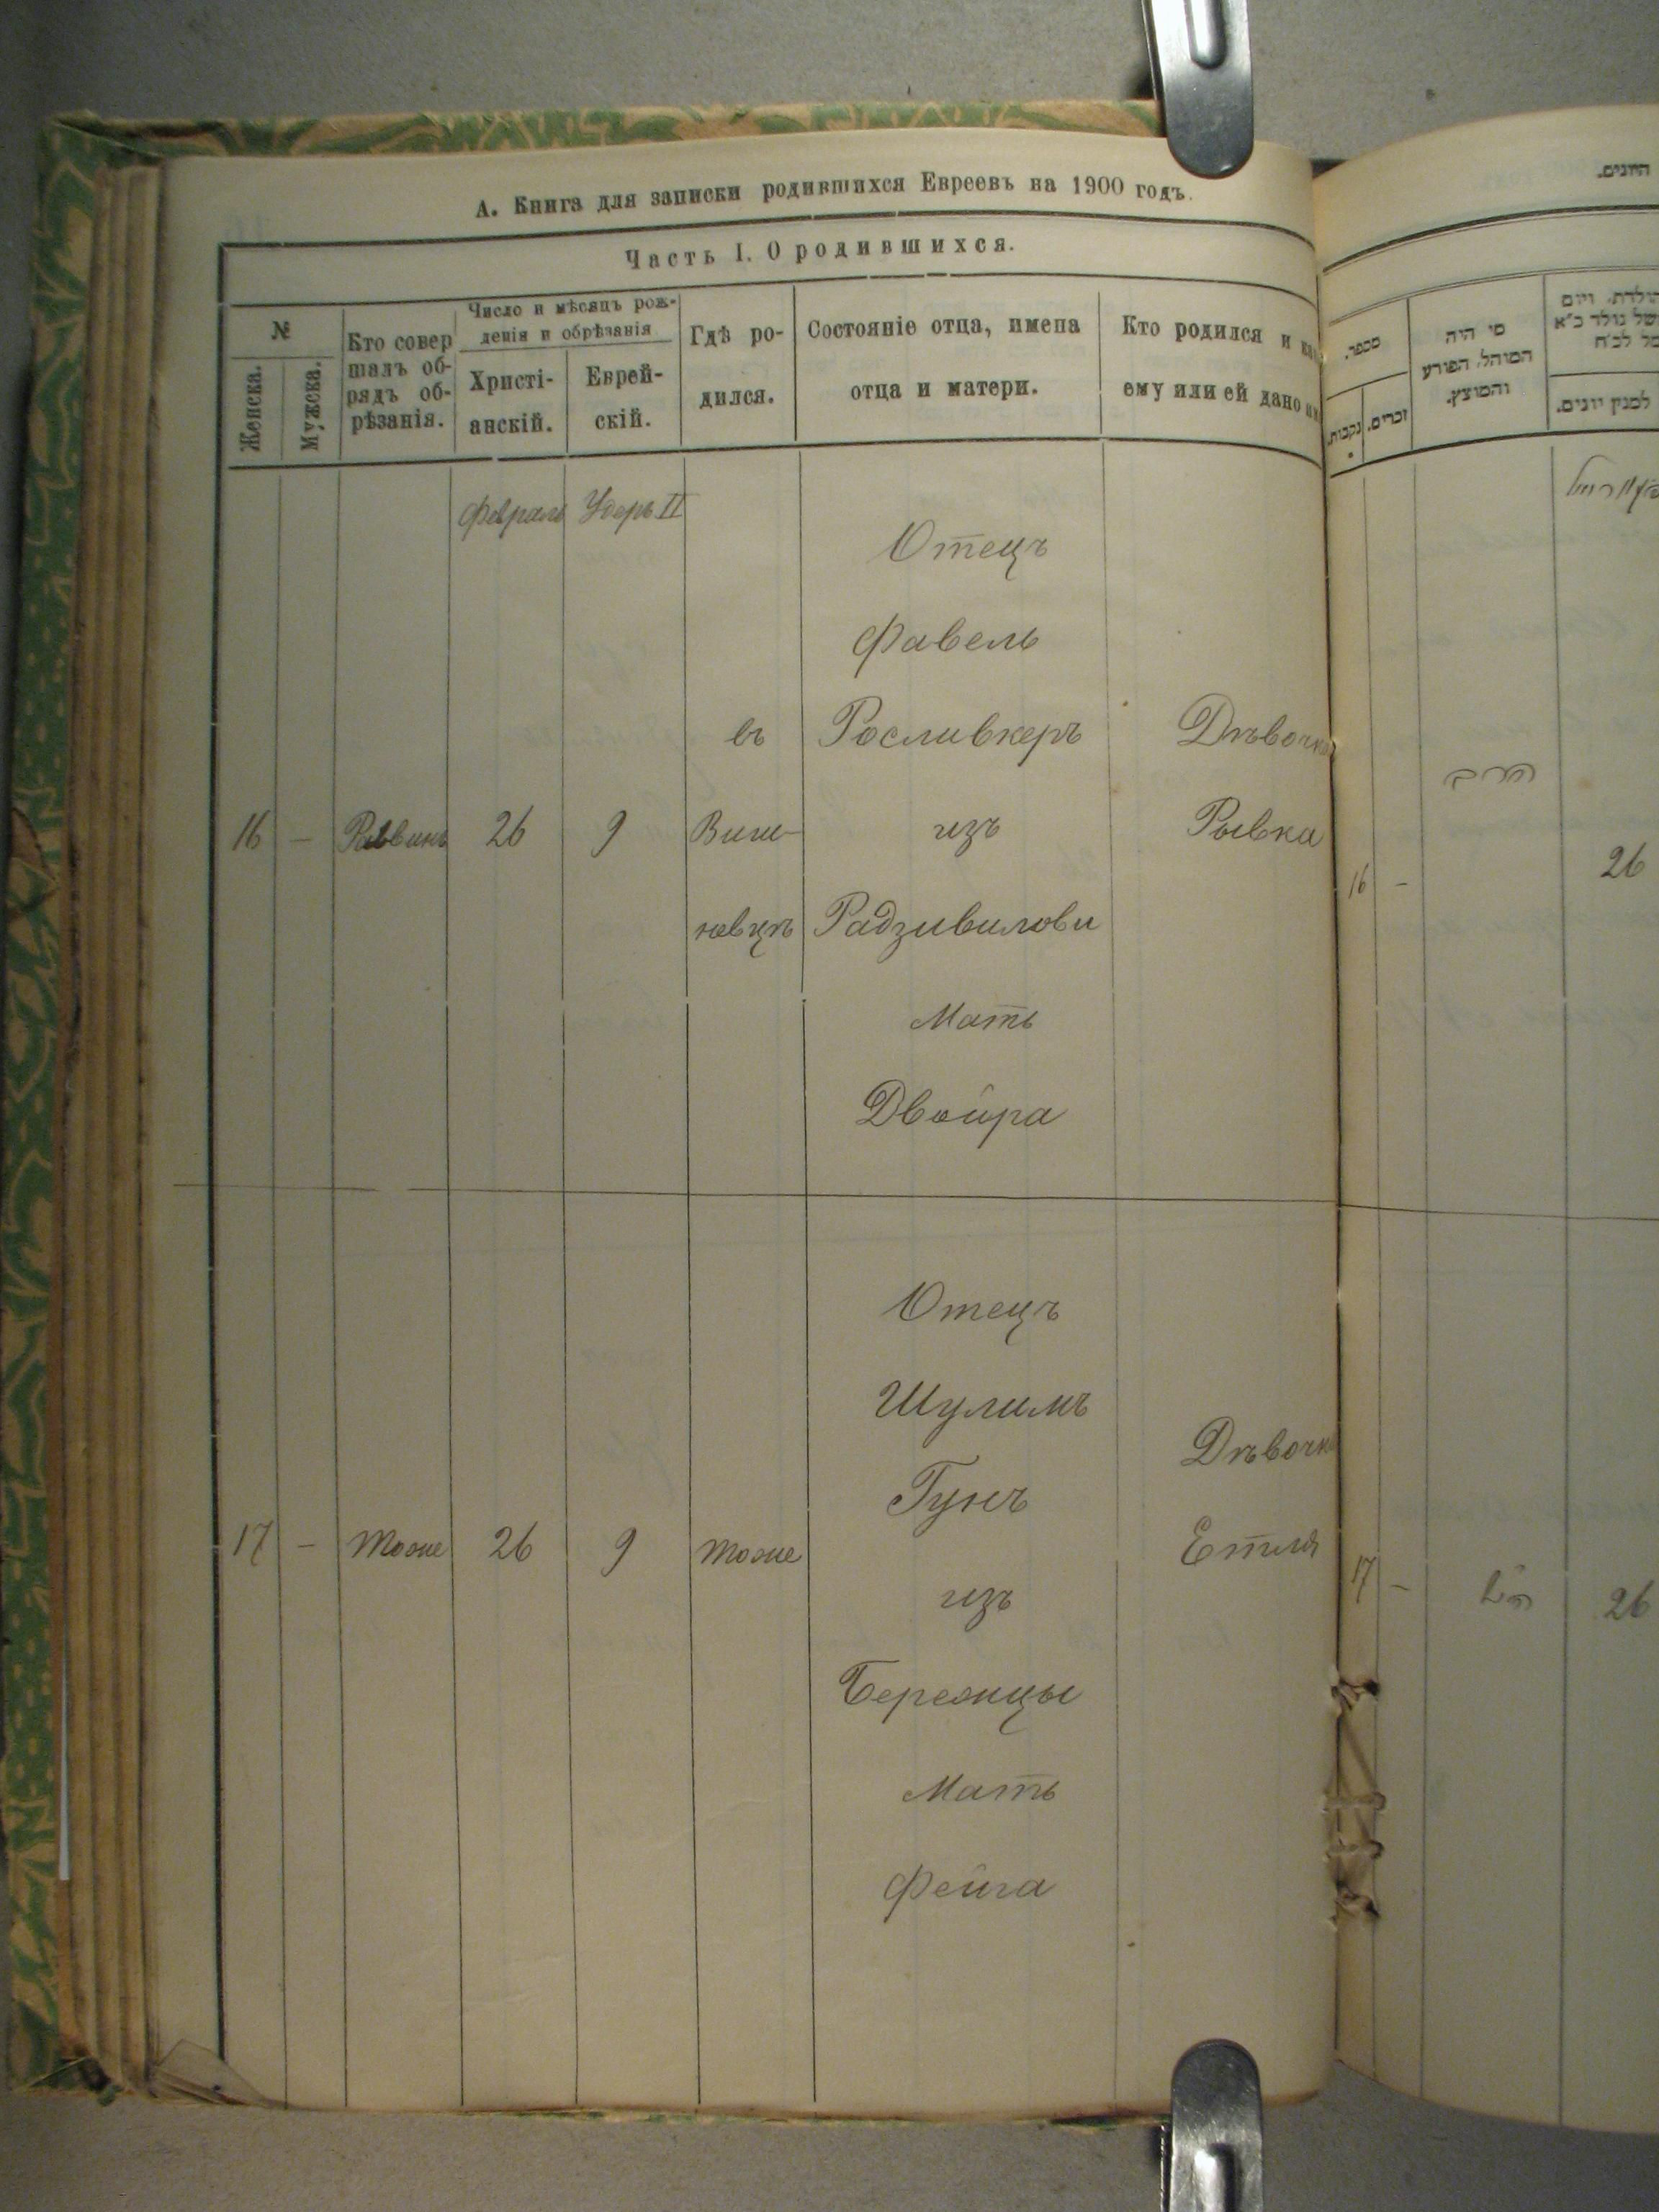 А. Книга для записки родившихся Евреевъ на 1900 годъ.
Часть I. О родившихся.
№
Женска.
Мужска.
Кто совер
шалъ об-
рядъ об-
рѣзанія.
Число и мѣсяцъ рож-
денія и обрѣзанія
Христі-
анскій.
Еврей-
скій.
Гдѣ ро-
дился.
Состояніе отца, имена
отца и матери.
Кто родился и
ему или ей дано
Февраль
Удеръ II
16
-
Раввинъ
26
9
въ
Виш-
невцѣ
Отецъ
Фавель
Росливкеръ
изъ
Радзивилови
Мать
Двойра
Дѣвочка
Рывка
17
-
тоже
26
9
тоже
Отецъ
Шулимъ
Гунъ
изъ
Бережцы
Мать
Фейга
Дѣвочка
Етля
היונים.
מספר.
נקבות.
זכרים.
מי היה
המוהל, הפורע
והמוצץ.
למנין יונים.
16
-
הרב
26
17
-
הנ״ל
26